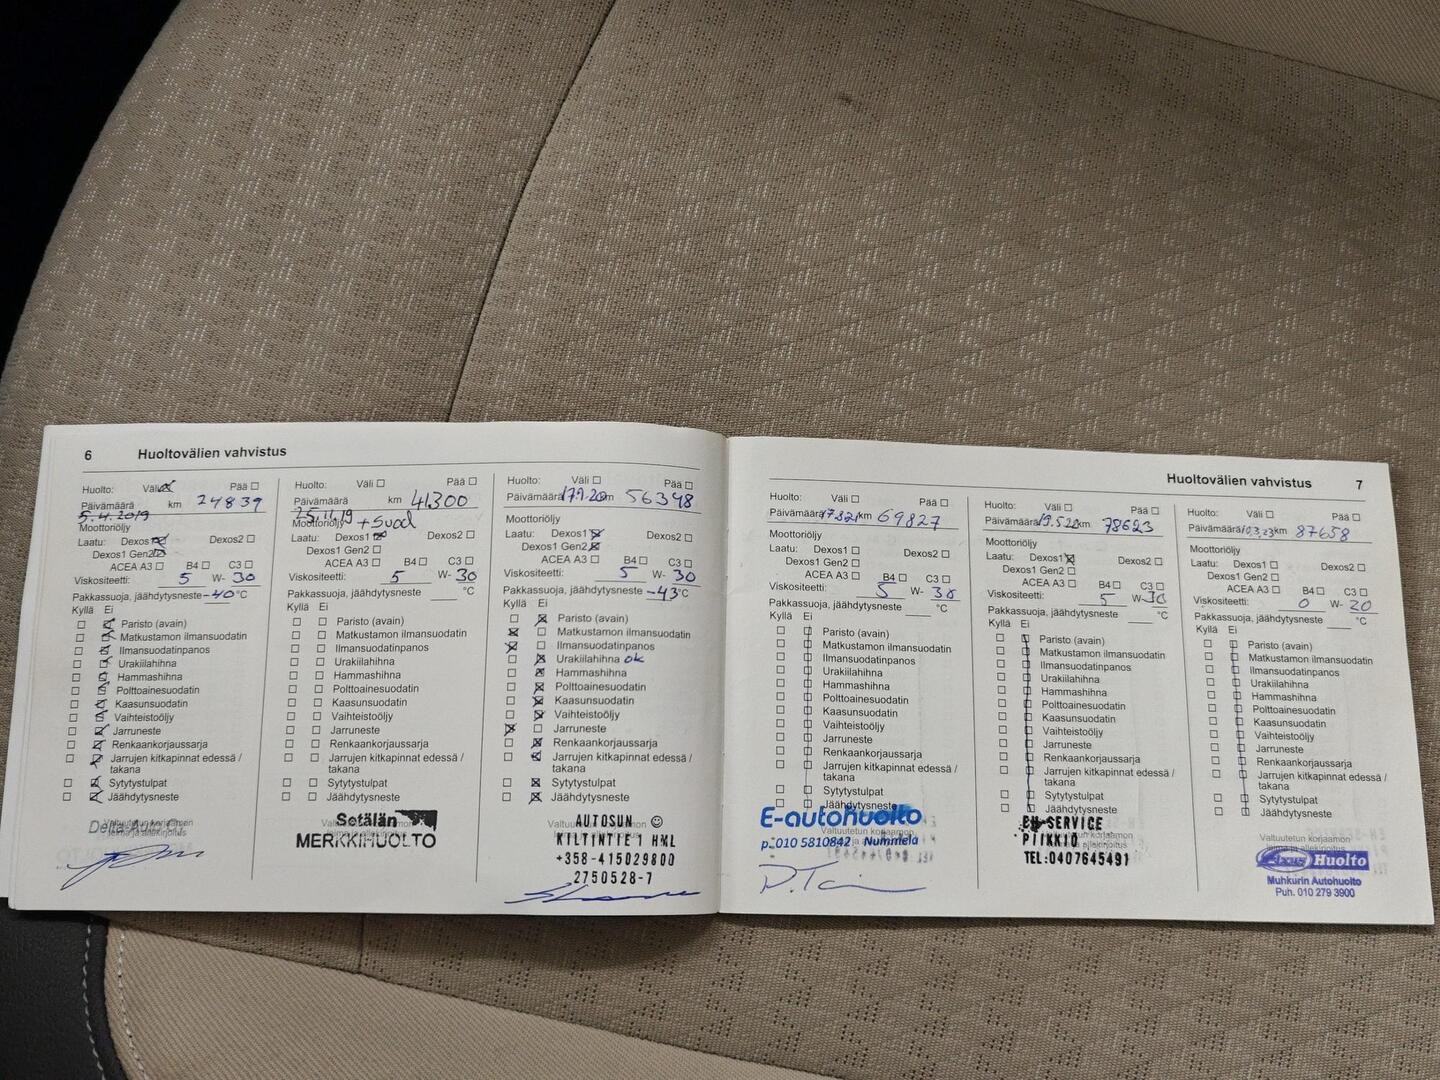 6 Huoltovälien vahvistus
Huolto: Väli Pää
Päivämäärä km 24839
5.4.2019
Moottoriöljy
Laatu: Dexos1 Dexos2
Dexos1 Gen2
ACEA A3 B4 C3
Viskositeetti: 5 W- 30
Pakkassuoja, jäähdytysneste -40 °C
Kyllä Ei
Paristo (avain)
Matkustamon ilmansuodatin
Ilmansuodatinpanos
Urakiilahihna
Hammashihna
Polttoainesuodatin
Kaasunsuodatin
Vaihteistoöljy
Jarruneste
Renkaankorjaussarja
Jarrujen kitkapinnat edessä /
takana
Sytytystulpat
Jäähdytysneste
Valtuutetun korjaamon
leima ja allekirjoitus
Delta Auto Oy
Huolto: Väli Pää
Päivämäärä km 41300
25.11.19
Moottoriöljy + Suod
Laatu: Dexos1 Dexos2
Dexos1 Gen2
ACEA A3 B4 C3
Viskositeetti: 5 W- 30
Pakkassuoja, jäähdytysneste °C
Kyllä Ei
Paristo (avain)
Matkustamon ilmansuodatin
Ilmansuodatinpanos
Urakiilahihna
Hammashihna
Polttoainesuodatin
Kaasunsuodatin
Vaihteistoöljy
Jarruneste
Renkaankorjaussarja
Jarrujen kitkapinnat edessä /
takana
Sytytystulpat
Jäähdytysneste
Valtuutetun korjaamon
leima ja allekirjoitus
Setälän
MERKKIHUOLTO
Huolto: Väli Pää
Päivämäärä 56348
Moottoriöljy
Laatu: Dexos1 Dexos2
Dexos1 Gen2
ACEA A3 B4 C3
Viskositeetti: 5 W- 30
Pakkassuoja, jäähdytysneste -43 °C
Kyllä Ei
Paristo (avain)
Matkustamon ilmansuodatin
Ilmansuodatinpanos
Urakiilahihna ok
Hammashihna
Polttoainesuodatin
Kaasunsuodatin
Vaihteistoöljy
Jarruneste
Renkaankorjaussarja
Jarrujen kitkapinnat edessä /
takana
Sytytystulpat
Jäähdytysneste
AUTOSUN
KILTINTIE 1 HML
+358-415029800
2750528-7
Huoltovälien vahvistus 7
Huolto: Väli Pää
Päivämäärä 17.8.21 km 69827
Moottoriöljy
Laatu: Dexos1 Dexos2
Dexos1 Gen2
ACEA A3 B4 C3
Viskositeetti: 5 W- 30
Pakkassuoja, jäähdytysneste °C
Kyllä Ei
Paristo (avain)
Matkustamon ilmansuodatin
Ilmansuodatinpanos
Urakiilahihna
Hammashihna
Polttoainesuodatin
Kaasunsuodatin
Vaihteistoöljy
Jarruneste
Renkaankorjaussarja
Jarrujen kitkapinnat edessä /
takana
Sytytystulpat
Jäähdytysneste
E-autohuolto
p. 010 5810842 Nummela
Huolto: Väli Pää
Päivämäärä 19.5.22 km 78623
Moottoriöljy
Laatu: Dexos1 Dexos2
Dexos1 Gen2
ACEA A3 B4 C3
Viskositeetti: 5 W- 30
Pakkassuoja, jäähdytysneste °C
Kyllä Ei
Paristo (avain)
Matkustamon ilmansuodatin
Ilmansuodatinpanos
Urakiilahihna
Hammashihna
Polttoainesuodatin
Kaasunsuodatin
Vaihteistoöljy
Jarruneste
Renkaankorjaussarja
Jarrujen kitkapinnat edessä /
takana
Sytytystulpat
Jäähdytysneste
SERVICE
PIIKKIÖ
TEL:0407645491
Huolto: Väli Pää
Päivämäärä 10.3.23 km 87658
Moottoriöljy
Laatu: Dexos1 Dexos2
Dexos1 Gen2
ACEA A3 B4 C3
Viskositeetti: 0 W- 20
Pakkassuoja, jäähdytysneste °C
Kyllä Ei
Paristo (avain)
Matkustamon ilmansuodatin
Ilmansuodatinpanos
Urakiilahihna
Hammashihna
Polttoainesuodatin
Kaasunsuodatin
Vaihteistoöljy
Jarruneste
Renkaankorjaussarja
Jarrujen kitkapinnat edessä /
takana
Sytytystulpat
Jäähdytysneste
Valtuutetun korjaamon
Fixus Huolto
Muhkurin Autohuolto
Puh. 010 279 3900